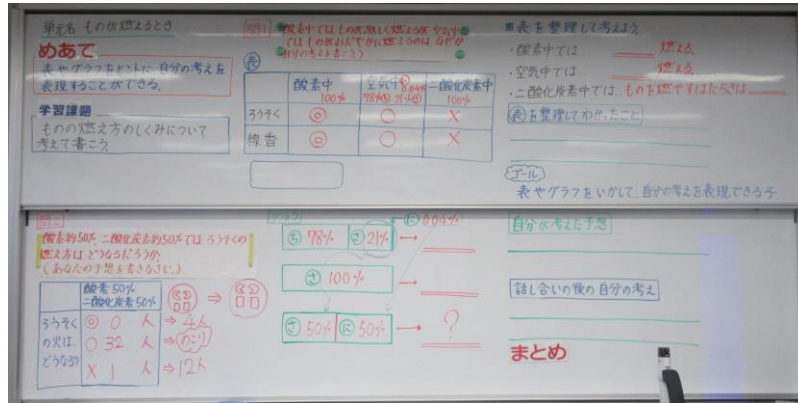 単元名 ものが燃えるとき
めあて
表やグラフをヒントに自分の考えを
表現することができる。
学習課題
ものの燃え方のしくみについて
考えて書こう。
問1
酸素中ではものが激しく燃えるが空気中
ではものがおだやかに燃えるのはなぜか
自分の考えを書こう
表
酸素中 100%
空気中 78% 21% 0.04%
二酸化炭素中 100%
ろうそく ◎ ○ ×
線香 ◎ ○ ×
表を整理して考えよう
・酸素中では 燃える
・空気中では 燃える
・二酸化炭素中では ものを燃やすはたらきは
表を整理してわかったこと
ゴール
表やグラフをいかして、自分の考えを表現できる子
問2
酸素約50%、二酸化炭素約50%では、ろうそくの
燃え方は、どうなるだろうか。
(あなたの予想を書きなさい。)
酸素50%
二酸化炭素50%
ろうそく ◎ 0 人 ⇒ 4人
の火は ○ 32 人 ⇒ のこり
どうなる? × 1 人 ⇒ 12人
グラフ
ち 78% さ 21% → に 0.04%
さ 100% →
さ 50% に 50% → ?
自分が考えた予想
話し合いの後の自分の考え
まとめ